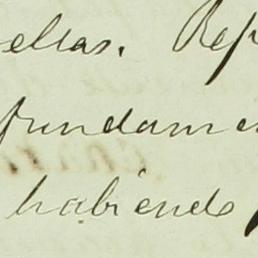 ellas. Rep
fundame
habiendo